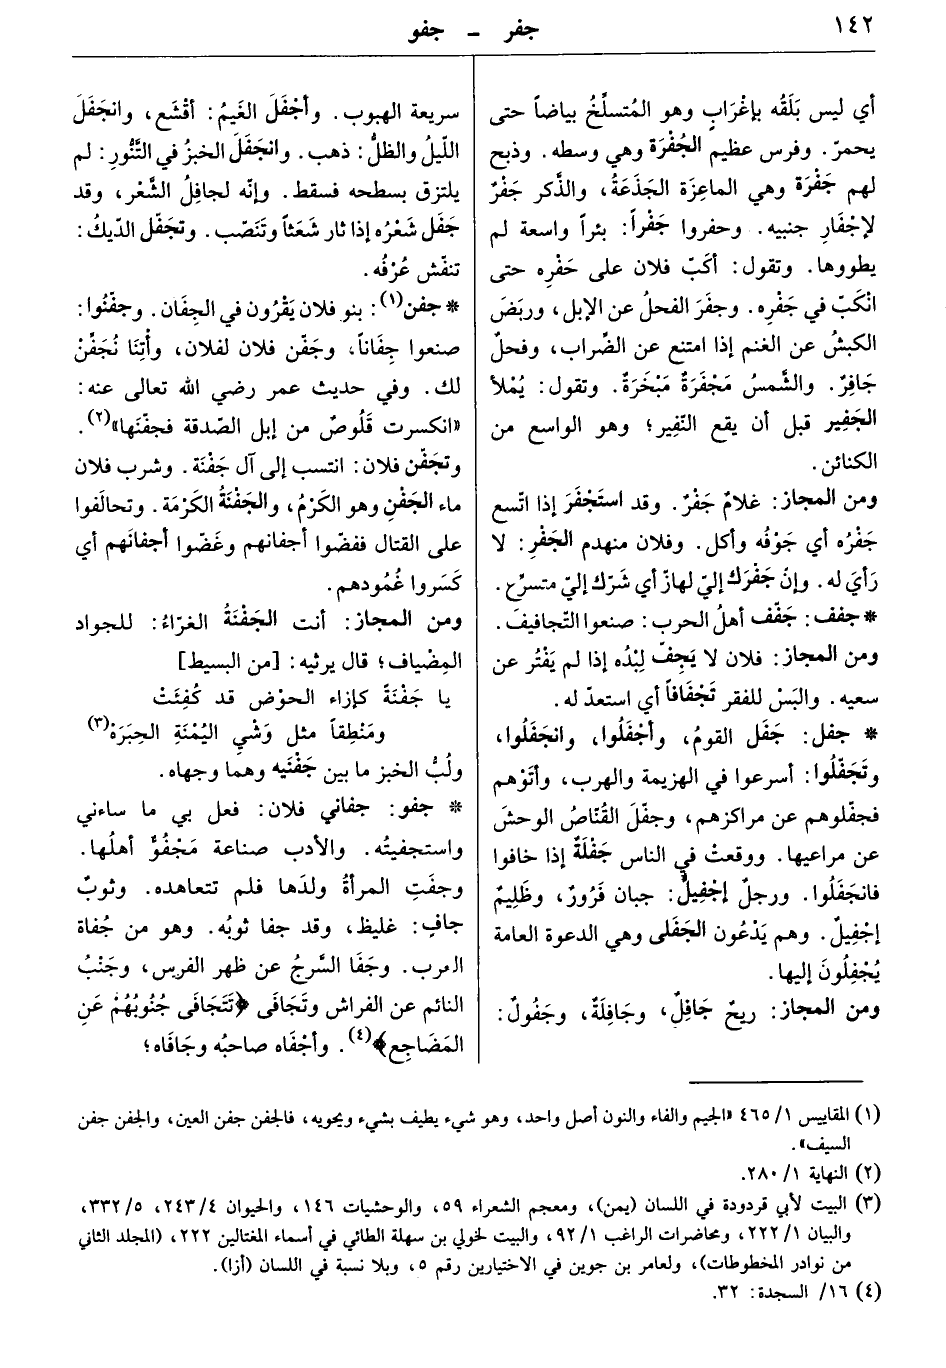 ١٤٢
جفر - جفو
أي ليس بَلَقُه بإغْرابٍ وهو المُتسلِّخُ بياضاً حتى
يحمرّ. وفرس عظيم الجُفْرَة وهي وسطه. وذبح
لهم جَفْرَة وهي الماعِزَة الجَذَعَةُ، والذَّكر جَفْرٌ
لإجْفَارِ جنبيه. وحفروا جَفْراً: بئراً واسعة لم
يطووها. وتقول: أكَبّ فلان على حَفْرِه حتى
انْكَبّ في جَفْرِه. وجفَرَ الفحلُ عن الإبل، وربَضَ
الكبشُ عن الغنم إذا امتنع عن الضّراب، وفحلٌ
جَافِرٌ. والشَّمسُ مَجْفَرَةٌ مَبْخَرَةٌ. وتقول: يُمْلأ
الجَفِير قبل أن يقع النّفِير؛ وهو الواسع من
الكنائن.
ومن المجاز: غلامٌ جَفْرٌ. وقد استَجْفَرَ إذا اتّسع
جَفْرُه أي جَوْفُه وأكل. وفلان منهدم الجَفْرِ: لا
رَأيَ له. وإنْ جَفْرَكَ إليّ لهارٌ أي شَرّك إليّ متسرِّع.
* جفف: جَفّف أهلُ الحرب: صنعوا التّجافيفَ.
ومن المجاز: فلان لا يَجِفّ لِبْدُه إذا لم يَفْتُر عن
سعيه. والبَسْ للفقر تَجْفَافاً أي استعدّ له.
* جفل: جَفَل القومُ، وأجْفَلُوا، وانجَفَلُوا،
وتَجَفّلُوا: أسرعوا في الهزيمة والهرب، وأتَوْهم
فجفّلوهم عن مراكزهم، وجفّلَ القُنّاصُ الوحشَ
عن مراعيها. ووقعتْ في الناس جَفْلَةٌ إذا خافوا
فانجَفَلُوا. ورجلٌ إجْفِيلٌ: جبان فَرُورٌ، وظَلِيمٌ
إجْفِيلٌ. وهم يَدْعُون الجَفَلى وهي الدعوة العامة
يُجْفِلُونَ إليها.
ومن المجاز: ريحٌ جَافِلٌ، وجَافِلَةٌ، وجَفُولٌ:
سريعة الهبوب. وأجْفَلَ الغَيمُ: أقْشَع، وانجَفَلَ
اللّيلُ والظلُّ: ذهب. وانجَفَلَ الخبزُ في التَّنُّورِ: لم
يلتزق بسطحه فسقط. وإنّه لجافِلُ الشَّعْر، وقد
جَفَل شَعْرُه إذا ثار شَعَثاً وتَنَصّب. وتجَفّل الدّيكُ:
تنفّش عُرْفُه.
* جفن(١): بنو فلان يَقْرُون في الجِفَان. وجفّنُوا:
صنعوا جِفَاناً، وجَفّن فلان لفلان، وأْتِنَا نُجَفّنْ
لك. وفي حديث عمر رضي الله تعالى عنه:
«انكسرت قَلُوصٌ من إبل الصّدقة فجفّنَها»(٢).
وتجَفّن فلان: انتسب إلى آل جَفْنَة. وشرب فلان
ماء الجَفْنِ وهو الكَرْمُ، والجَفْنَةُ الكَرْمَة. وتحالَفوا
على القتال ففضّوا أجفانهم وغَضّوا أجفانَهم أي
كَسَروا غُمُودهم.
ومن المجاز: أنت الجَفْنَةُ الغرّاءُ: للجواد
المِضْياف؛ قال يرثيه: [من البسيط]
يا جَفْنَةً كإزاء الحوْض قد كُفِئَتْ
ومَنْطِقاً مثل وَشْيِ اليُمْنَةِ الحِبَرَهْ(٣)
ولُبُّ الخبز ما بين جَفْنَيه وهما وجهاه.
* جفو: جفاني فلان: فعل بي ما ساءني
واستجفيتُه. والأدب صناعة مَجْفُوٌّ أهلُها.
وجفَتِ المرأةُ ولدَها فلم تتعاهده. وثوبٌ
جافٍ: غليظ، وقد جفا ثوبُه. وهو من جُفاة
العرب. وجَفَا السَّرجُ عن ظهر الفرس، وجَنْبُ
النائم عن الفراش وتَجَافَى ﴿تَتَجَافَى جُنُوبُهُمْ عَنِ
المَضَاجِعِ﴾(٤). وأجْفَاه صاحبُه وجَافَاه؛
(١) المقاييس ١/ ٤٦٥ «الجيم والفاء والنون أصل واحد، وهو شيء يطيف بشيء ويحويه، فالجفن جفن العين، والجفن جفن
السيف».
(٢) النهاية ١/ ٢٨٠.
(٣) البيت لأبي قردودة في اللسان (يمن)، ومعجم الشعراء ٥٩، والوحشيات ١٤٦، والحيوان ٤/ ٢٤٣، ٥/ ٣٣٢،
والبيان ١/ ٢٢٢، ومحاضرات الراغب ١/ ٩٢، والبيت لخولي بن سهلة الطائي في أسماء المغتالين ٢٢٢، (المجلد الثاني
من نوادر المخطوطات)، ولعامر بن جوين في الاختيارين رقم ٥، وبلا نسبة في اللسان (أزا).
(٤) ١٦/ السجدة: ٣٢.